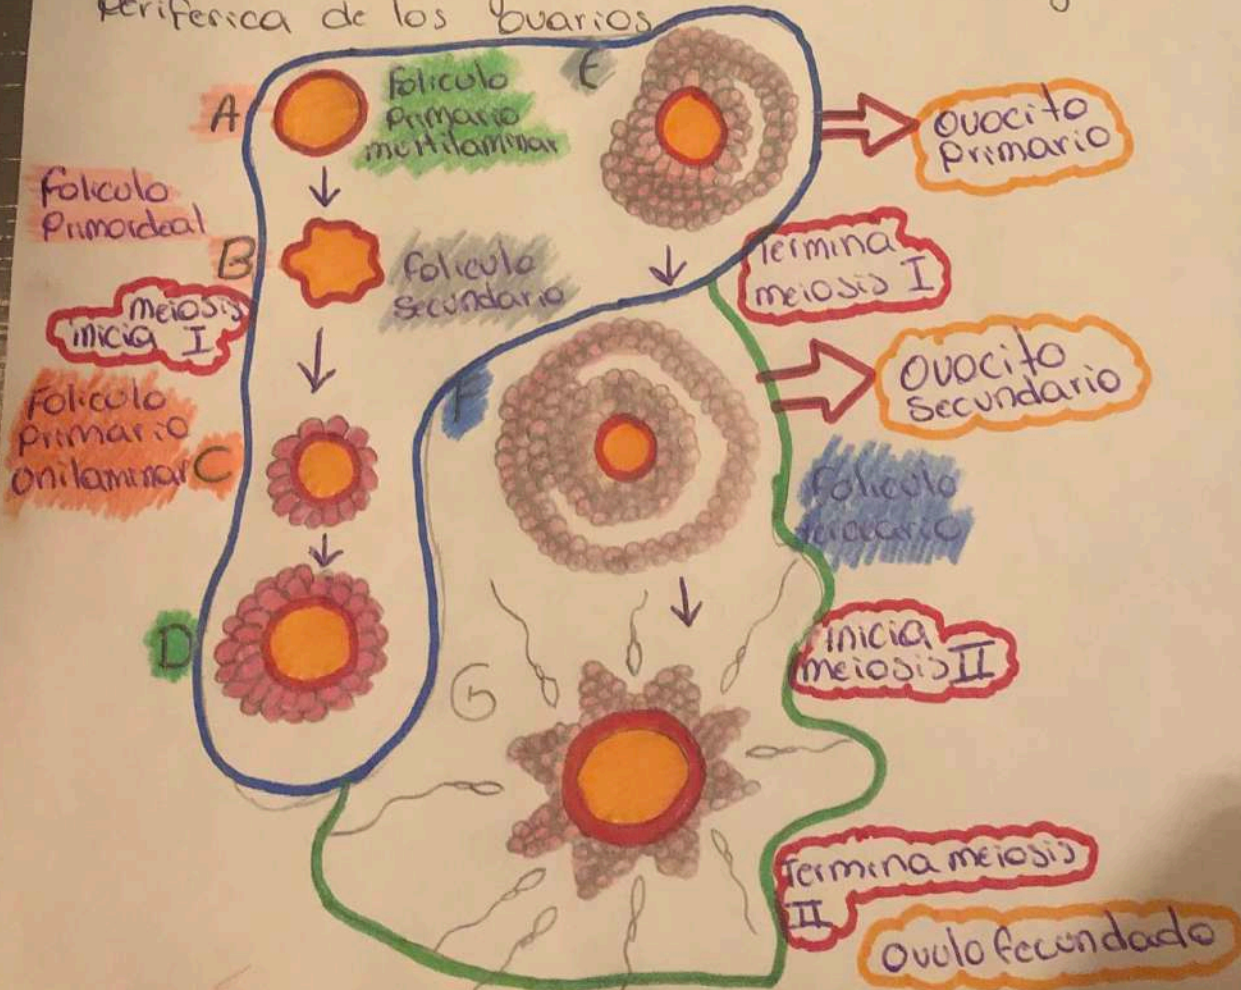 Periferica de los Ovarios
A
Foliculo
Primario
multilaminar
E
Ovocito
primario
Foliculo
Primordeal
B
Foliculo
Secundario
Termina
meiosis I
meiosis
inicia I
Ovocito
Secundario
F
Foliculo
primario
Unilaminar C
Foliculo
terciario
D
inicia
meiosis II
G
Termina meiosis
II
Ovulo fecundado